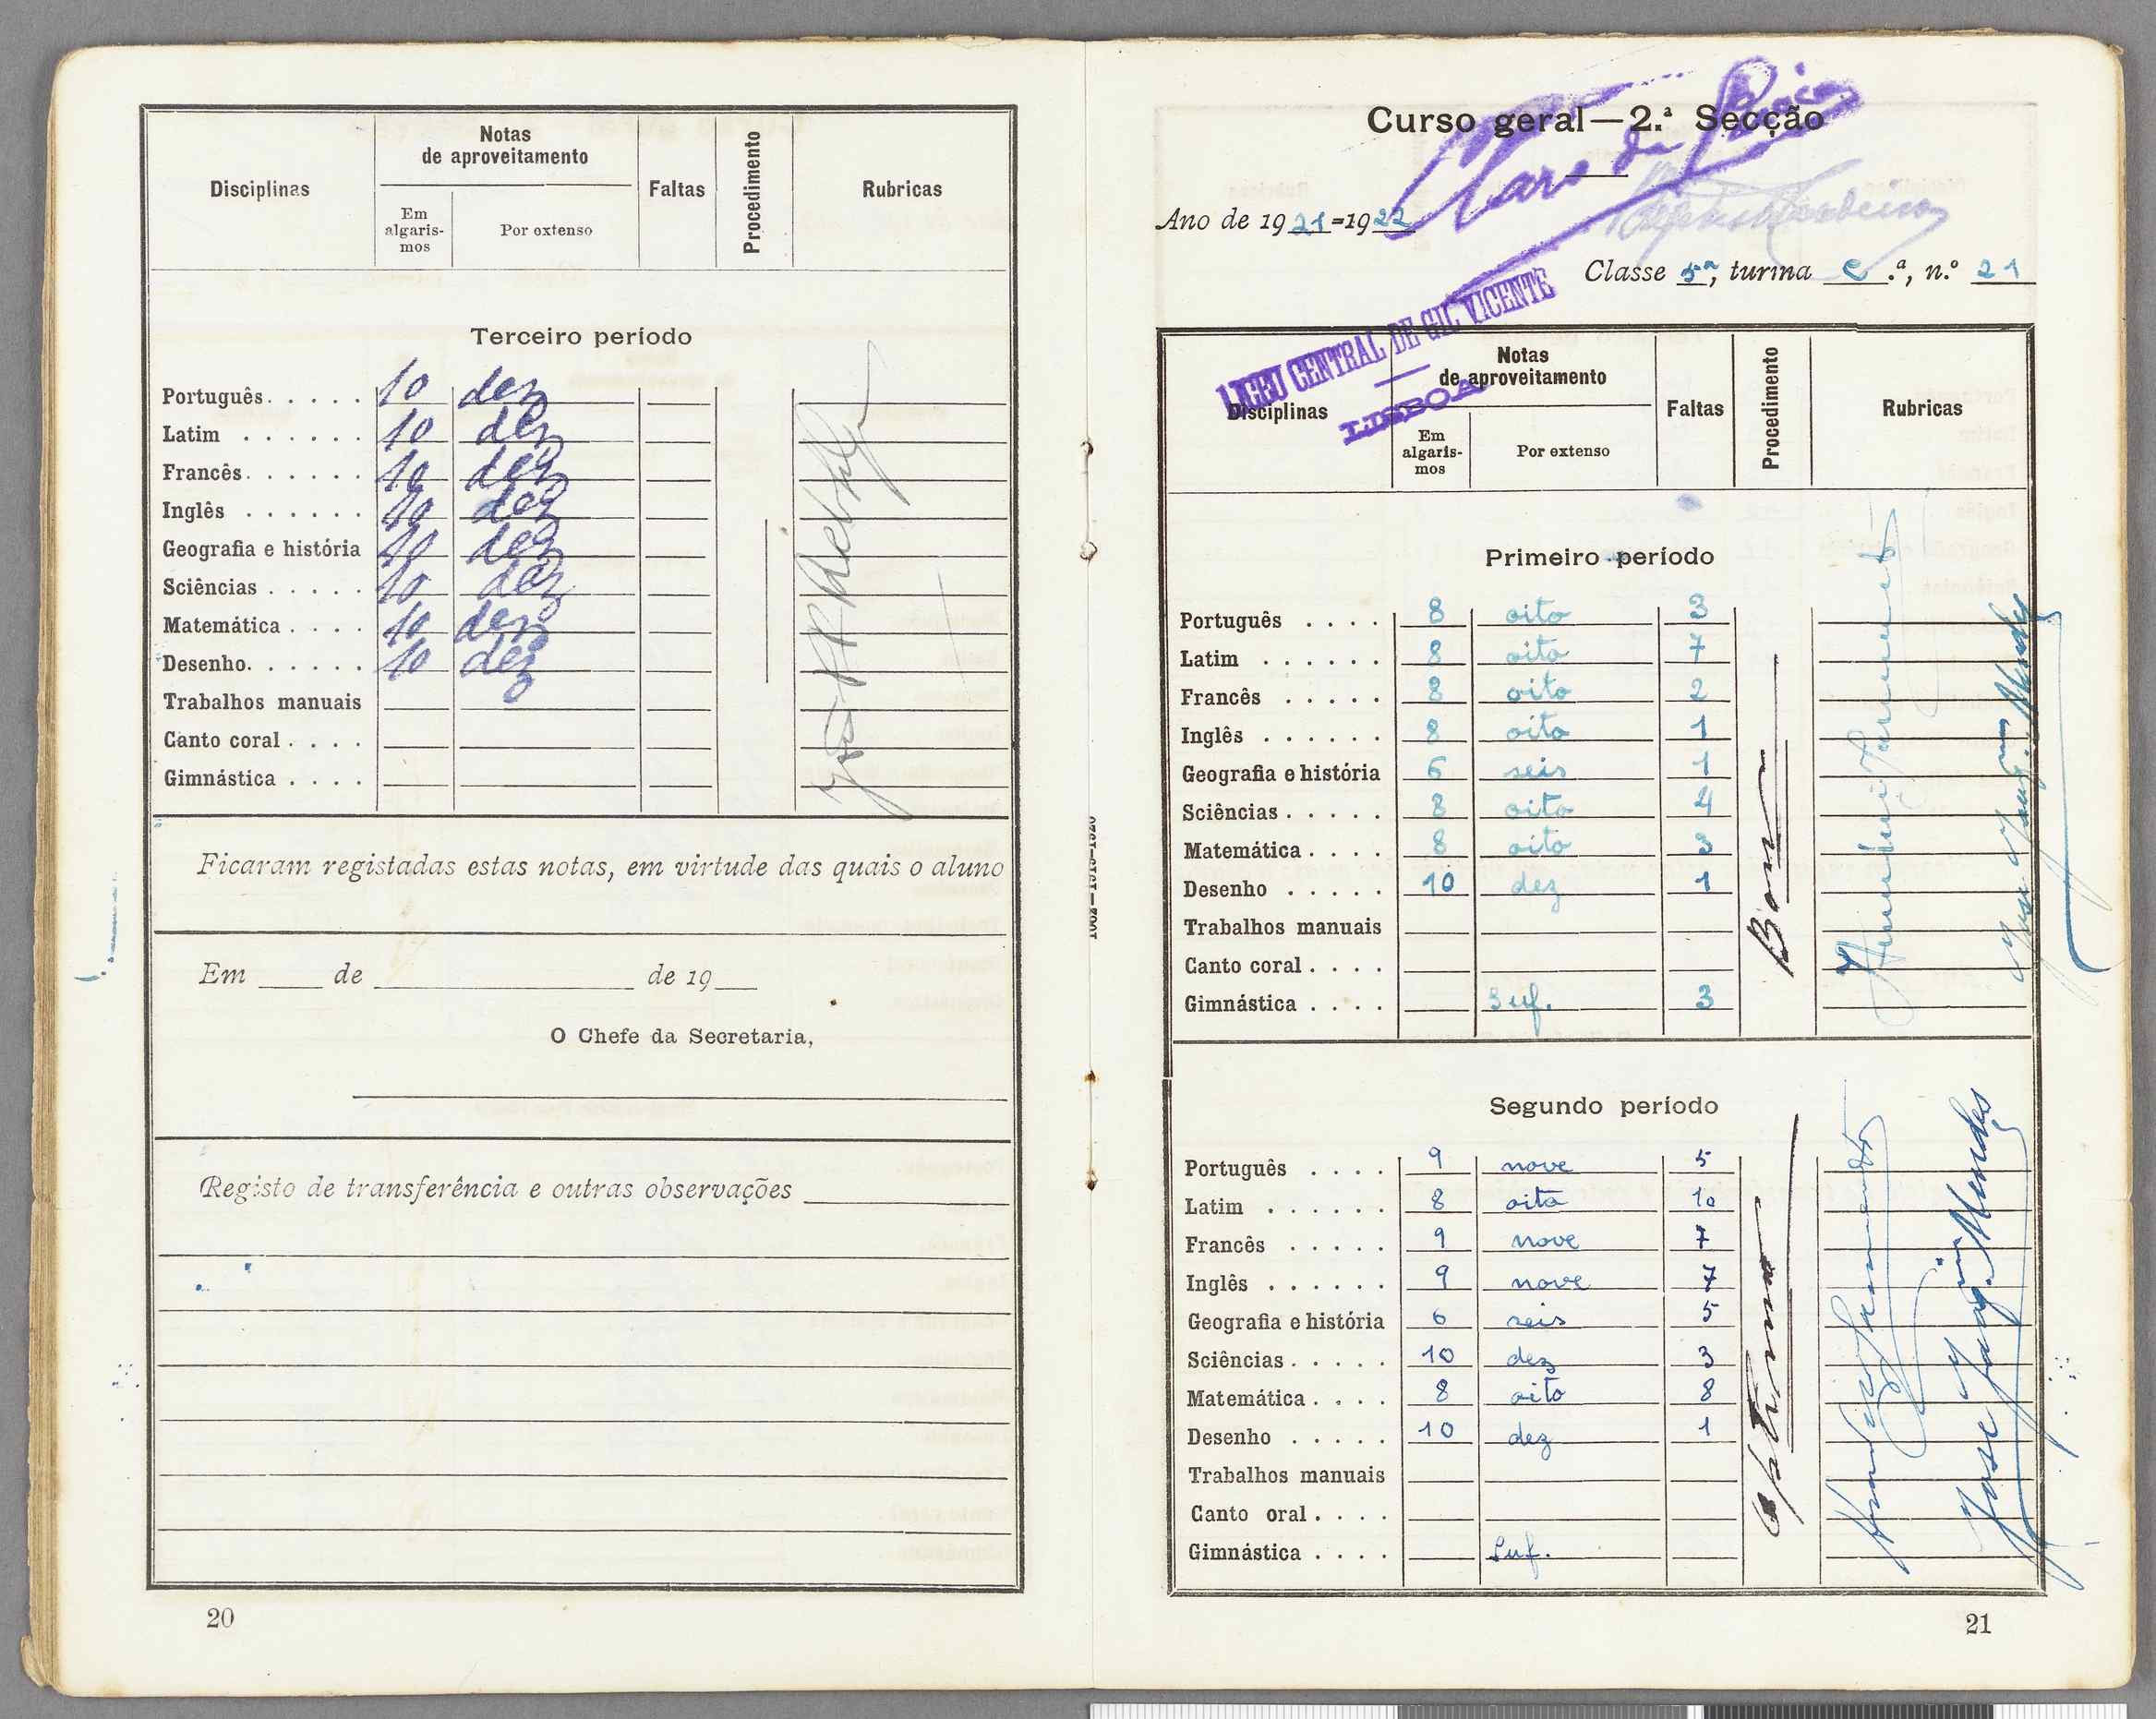 Disciplinas | Notas de aproveitamento | Faltas | Procedimento | Rubricas
Em algaris-mos | Por extenso
Terceiro período
Português. . . . . 10 dez
Latim . . . . . . 10 dez
Francês. . . . . . 10 dez
Inglês . . . . . . 10 dez
Geografia e história 10 dez
Sciências . . . . . 10 dez
Matemática . . . . 10 dez
Desenho. . . . . . 10 dez
Trabalhos manuais
Canto coral . . . .
Gimnástica . . . .
Ficaram registadas estas notas, em virtude das quais o aluno
Em ____ de ____ de 19__
O Chefe da Secretaria,
Registo de transferência e outras observações
20
Curso geral—2.ª Secção
Ano de 1921=1922
Classe 5ª, turma C.ª, n.º 21
LICEU CENTRAL DE GIL VICENTE
LISBOA
Disciplinas | Notas de aproveitamento | Faltas | Procedimento | Rubricas
Em algaris-mos | Por extenso
Primeiro período
Português . . . . 8 oito 3
Latim . . . . . . 8 oito 7
Francês . . . . . 8 oito 2
Inglês . . . . . . 8 oito 1
Geografia e história 6 seis 1
Sciências . . . . . 8 oito 4
Matemática . . . . 8 oito 3
Desenho . . . . . 10 dez 1
Trabalhos manuais
Canto coral . . . .
Gimnástica . . . . Suf. 3
Bom
José Joaqim Mendes
Segundo período
Português . . . . 9 nove 5
Latim . . . . . . 8 oito 10
Francês . . . . . 9 nove 7
Inglês . . . . . . 9 nove 7
Geografia e história 6 seis 5
Sciências . . . . . 10 dez 3
Matemática . . . . 8 oito 8
Desenho . . . . . 10 dez 1
Trabalhos manuais
Canto oral . . . .
Gimnástica . . . . Suf.
Optimo
José Joaqim Mendes
21